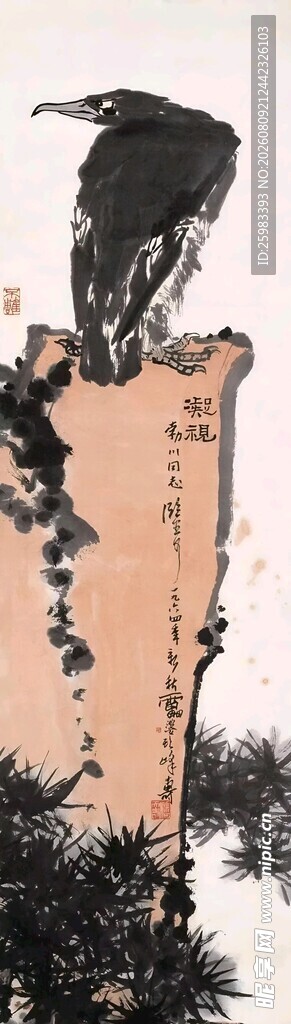 凝視
勃川同志
一九六四年新秋雷婆頭峰壽
ID:25983393 NO:20260809212442326103
昵享网 www.nipic.cn